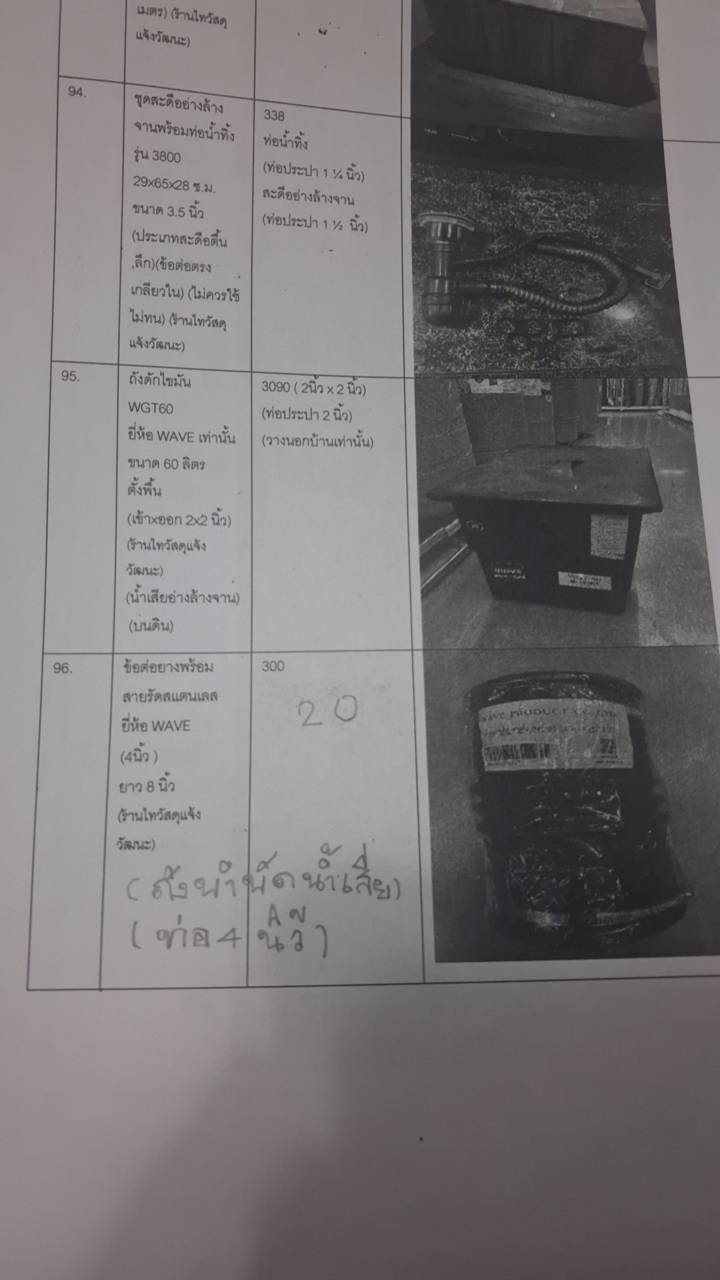 เมตร) (ร้านไทวัสดุ
แจ้งวัฒนะ)
94.
ชุดสะดืออ่างล้าง
จานพร้อมท่อน้ำทิ้ง
รุ่น 3800
29x65x28 ซ.ม.
ขนาด 3.5 นิ้ว
(ประเภทสะดือตื้น
,ลึก)(ข้อต่อตรง
เกลียวใน) (ไม่ควรใช้
ไม่ทน) (ร้านไทวัสดุ
แจ้งวัฒนะ)
338
ท่อน้ำทิ้ง
(ท่อประปา 1 ¼ นิ้ว)
สะดืออ่างล้างจาน
(ท่อประปา 1 ½ นิ้ว)
95.
ถังดักไขมัน
WGT60
ยี่ห้อ WAVE เท่านั้น
ขนาด 60 ลิตร
ตั้งพื้น
(เข้าxออก 2x2 นิ้ว)
(ร้านไทวัสดุแจ้ง
วัฒนะ)
(น้ำเสียอ่างล้างจาน)
(บนดิน)
3090 ( 2นิ้ว x 2 นิ้ว)
(ท่อประปา 2 นิ้ว)
(วางนอกบ้านเท่านั้น)
96.
ข้อต่อยางพร้อม
สายรัดสแตนเลส
ยี่ห้อ WAVE
(4นิ้ว )
ยาว 8 นิ้ว
(ร้านไทวัสดุแจ้ง
วัฒนะ)
300
20
(ถังบำบัดน้ำเสีย)
(ท่อ 4 นิ้ว)
WAVE PRODUCT CO.,LTD.